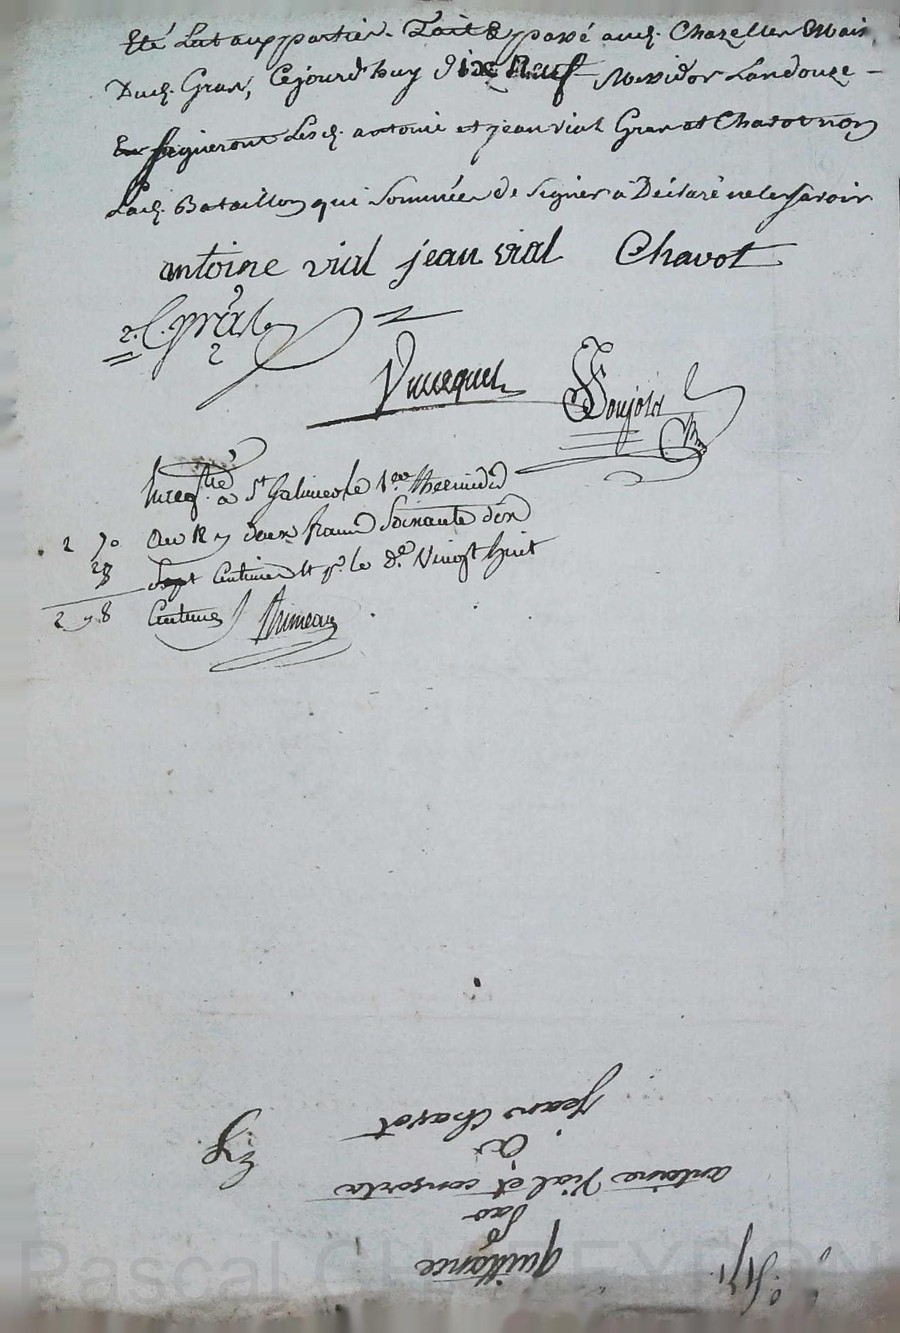 Eté Lut aux parties. Fait & passé aud. Chazelles Mais
Dud. Gras, Cejourd'huy dix Neuf Messidor Landouze
En signeront Lesd. antoine et jean vial Gras et Chavot non
Lad. Bataillon qui Sommée de Signer a Déclaré ne le savoir
antoine vial jean vial Chavot
Gras
Soujol
Enregtré a St Galmier le 1er thermidor
2 70 an 12 deux francs Soixante dix
28 Centimes et pr. le de. Vingt huit
2 98 Centimes
quittance
Par
antoine Vial et consorts
A
jean Chavot